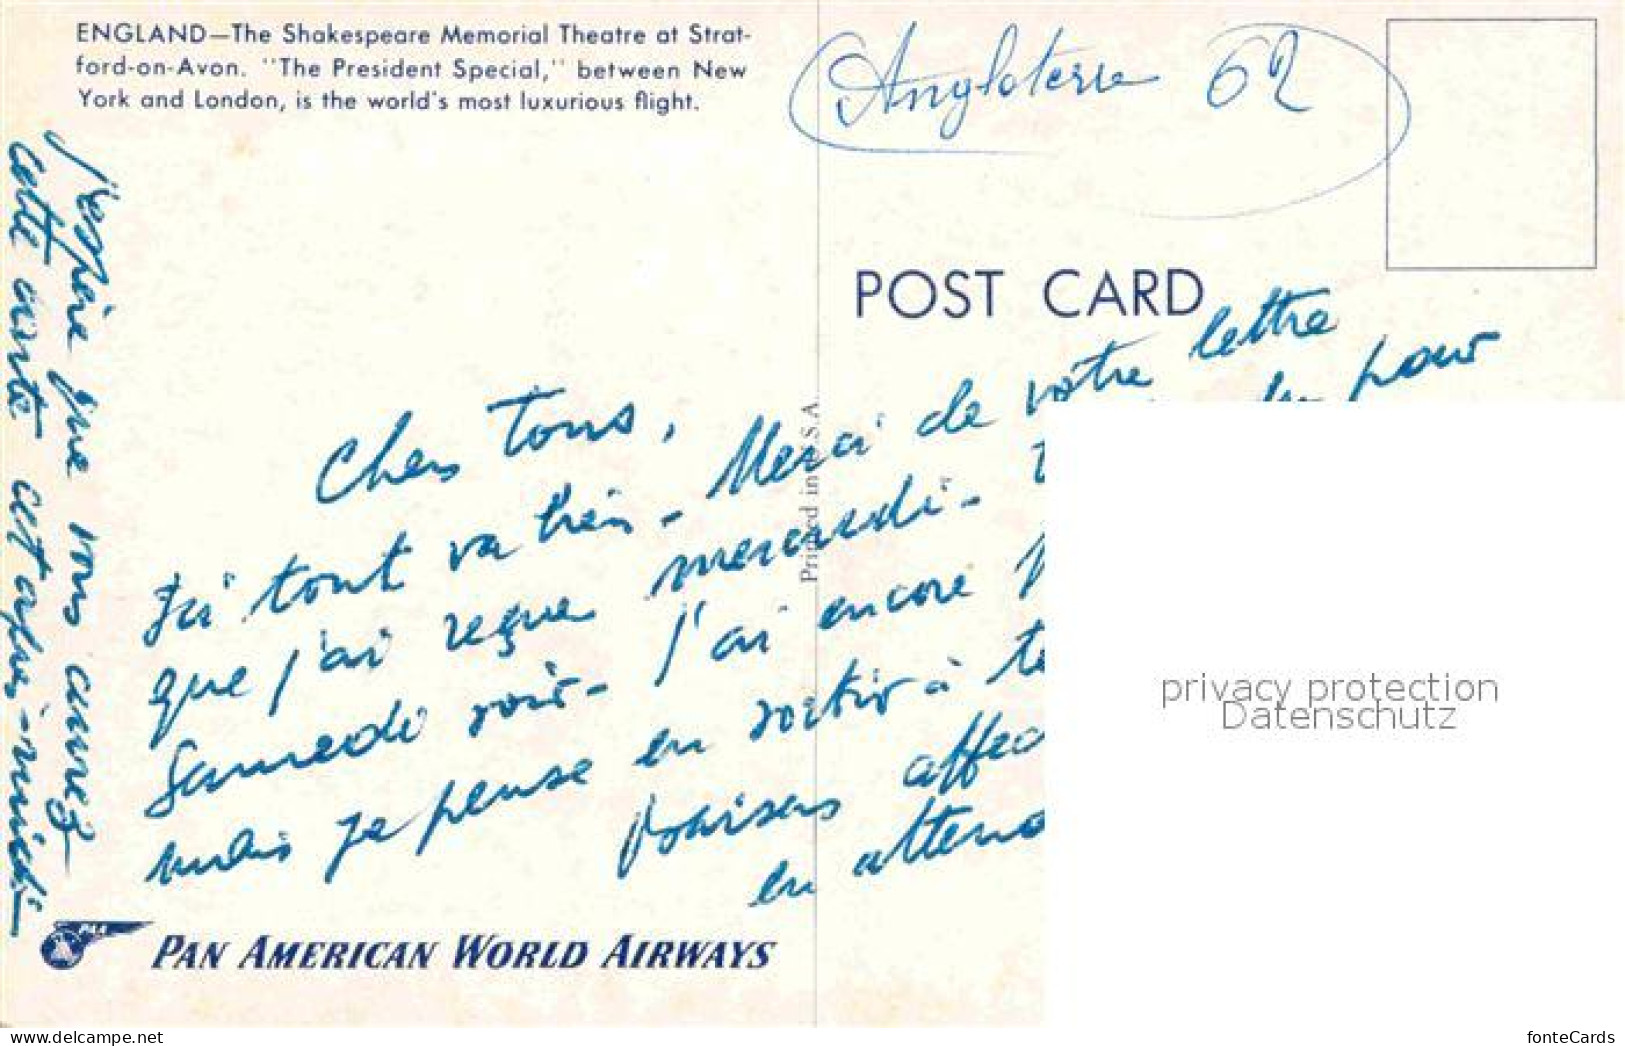 ENGLAND—The Shakespeare Memorial Theatre at Strat-
ford-on-Avon. "The President Special," between New
York and London, is the world's most luxurious flight.
Angleterre 62
POST CARD
Printed in U.S.A.
Chers tous,
Ici tout va bien - Merci de votre lettre
que j'ai reçue mercredi - pour
Samedi soir - J'ai encore
mais je pense en sortir à
Baisers
en
J'espère que vous aurez
cette carte cet après-midi
PAA
PAN AMERICAN WORLD AIRWAYS
privacy protection
Datenschutz
www.delcampe.net
fonteCards